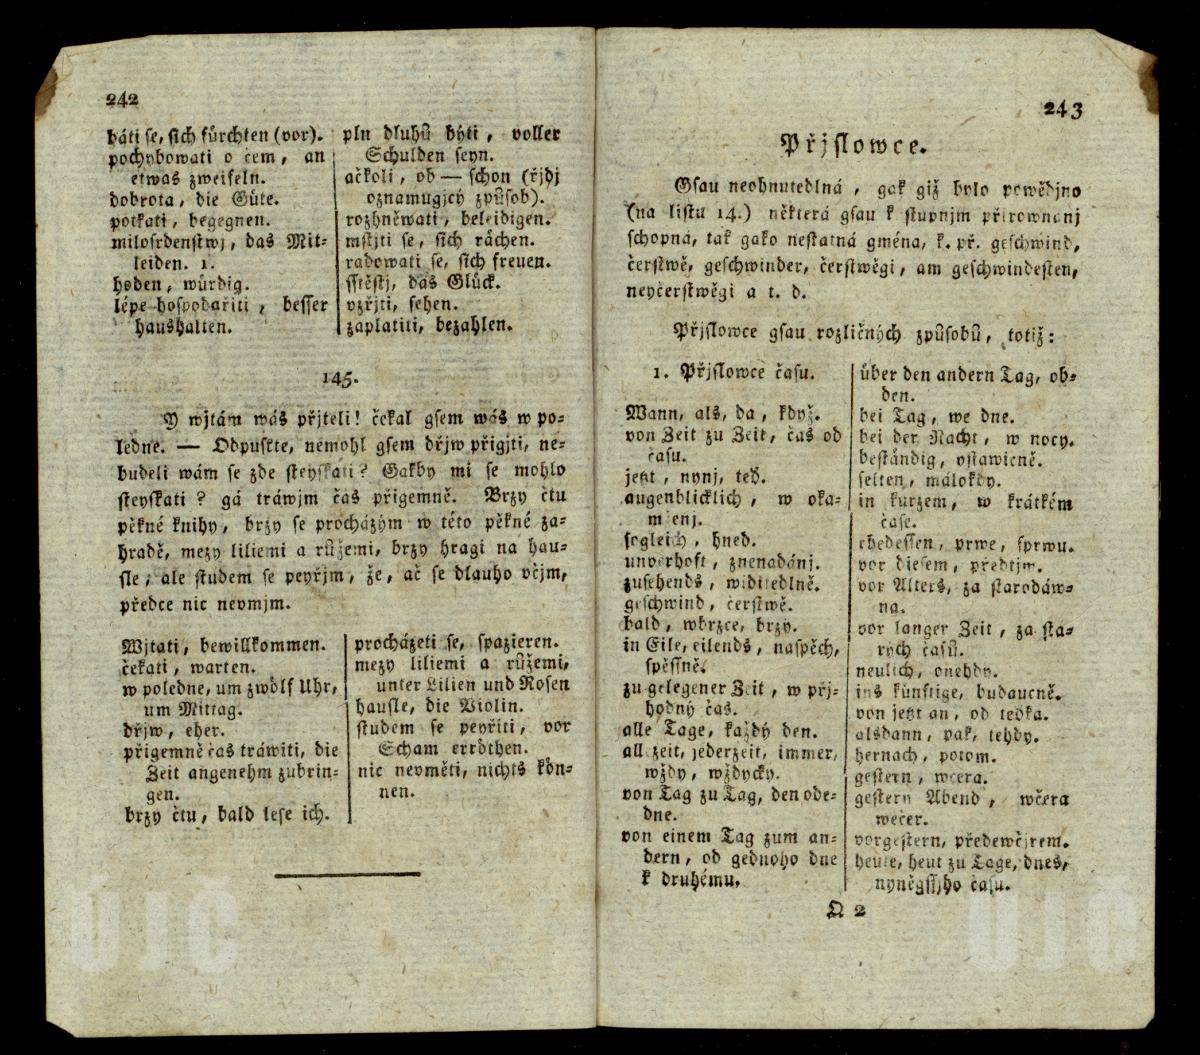 242
báti se, sich fürchten (vor).
pochybowati o čem, an
etwas zweifeln.
dobrota, die Güte.
potkati, begegnen.
milosrdenstwj, das Mit=
leiden. 1.
hoden, würdig.
lépe hospodařiti, besser
haushalten.
pln dluhů býti, voller
Schulden seyn.
ačkoli, ob — schon (řjdj
oznamugjcý způsob).
rozhněwati, beleidigen.
mstjti se, sich rächen.
radowati se, sich freuen.
sstěstj, das Glück.
vzřjti, sehen.
zaplatiti, bezahlen.
145.
Y wjtám wás přjteli! čekal gsem wás w po=
ledne. — Odpusťte, nemohl gsem dřjw přigjti, ne=
budeli wám se zde steyskati? Gakby mi se mohlo
steyskati? gá tráwjm čas přigemně. Brzy čtu
pěkné knihy, brzy se procházým w této pěkné za=
hradě, mezy liliemi a růžemi, brzy hragi na hau=
sle, ale studem se peyřjm, že, ač se dlauho včjm,
předce nic nevmjm.
Wjtati, bewillkommen.
čekati, warten.
w poledne, um zwölf Uhr,
um Mittag.
dřjw, eher.
přigemně čas tráwiti, die
Zeit angenehm zubrin=
gen.
brzy čtu, bald lese ich.
procházeti se, spazieren.
mezy liliemi a růžemi,
unter Lilien und Rosen
hausle, die Violin.
studem se peyřiti, vor
Scham erröthen.
nic nevměti, nichts kön=
nen.
243
Přjslowce.
Gsau neohnutedlná, gak giž bylo powědjno
(na listu 14.) některá gsau k stupnjm přirownánj
schopná, tak gako nestatná gména, k. př. geschwind,
čerstwě, geschwinder, čerstwěgi, am geschwindesten,
neyčerstwěgi a t. d.
Přjslowce gsau rozličných způsobů, totiž:
1. Přjslowce času.
Wann, als, da, když.
von Zeit zu Zeit, čas od
času.
jetzt, nynj, teď.
augenblicklich, w oka=
mženj.
sogleich, hned.
unverhoft, znenadánj.
zusehends, widitedlně.
geschwind, čerstwě.
bald, wbrzce, brzy.
in Eile, eilends, naspěch,
spěssně.
zu gelegener Zeit, w přj=
hodný čas.
alle Tage, každý den.
allzeit, jederzeit, immer,
wždy, wždycky.
von Tag zu Tag, den ode=
dne.
von einem Tag zum an=
dern, od gednoho dne
k druhému.
über den andern Tag, ob=
den.
bei Tag, we dne.
bei der Nacht, w nocy.
beständig, vstawičně.
selten, málokdy.
in kurzem, w krátkém
čase.
ehedessen, prwe, sprwu.
vor diesem, předtjm.
vor Alters, za starodáw=
na.
vor langer Zeit, za sta=
rých časů.
neulich, onehdy.
ins künftige, budaucně.
von jetzt an, od teďka.
alsdann, pak, tehdy.
hernach, potom.
gestern, wčera.
gestern Abend, wčera
wečer.
vorgestern, předewčjrem.
heute, heut zu Tage, dnes,
nyněgssjho času.
Q 2
UJC
UJC